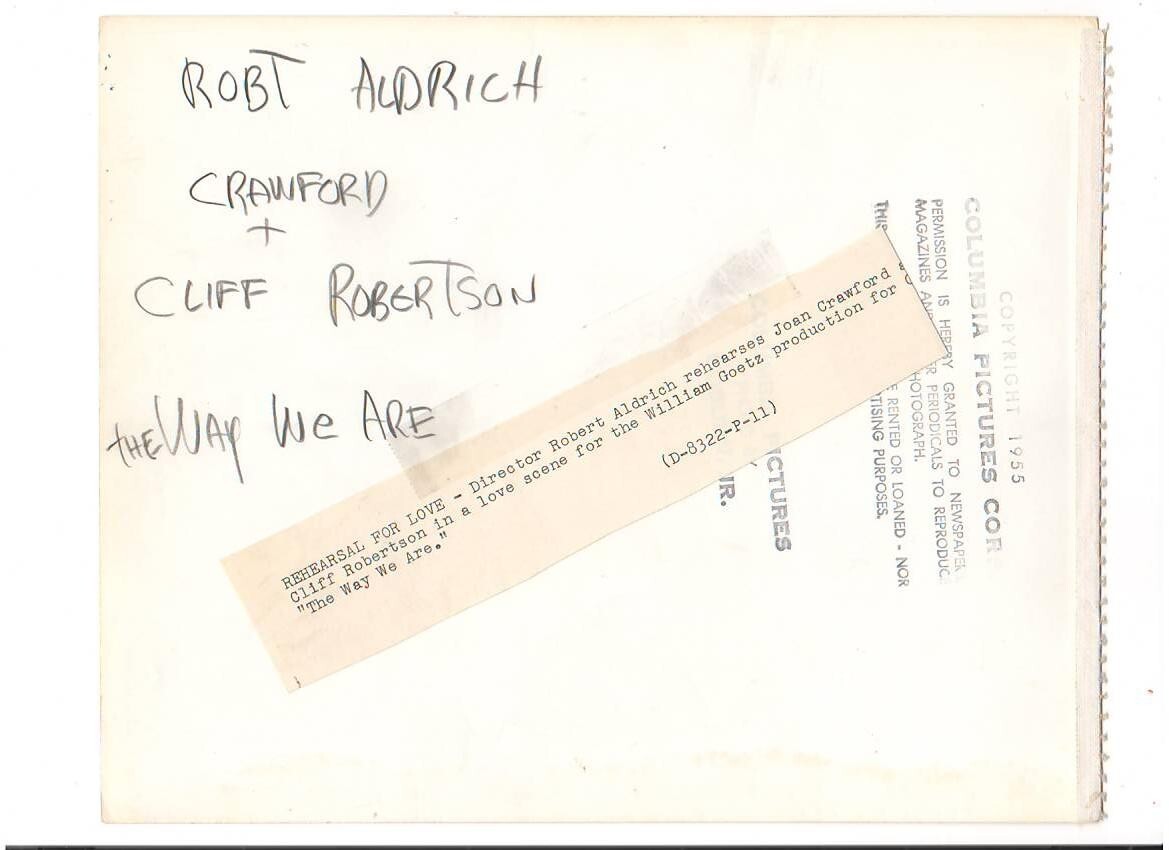 ROBT ALDRICH
CRAWFORD
+
CLIFF ROBERTSON
THE WAY WE ARE
REHEARSAL FOR LOVE - Director Robert Aldrich rehearses Joan Crawford
Cliff Robertson in a love scene for the William Goetz production for
"The Way We Are."
(D-8322-P-11)
COPYRIGHT 1955
COLUMBIA PICTURES COR
PERMISSION IS HEREBY GRANTED TO NEWSPAPER
MAGAZINES AND PERIODICALS TO REPRODUC
HOTOGRAPH.
RENTED OR LOANED - NOR
TISING PURPOSES.
ICTURES
JR.